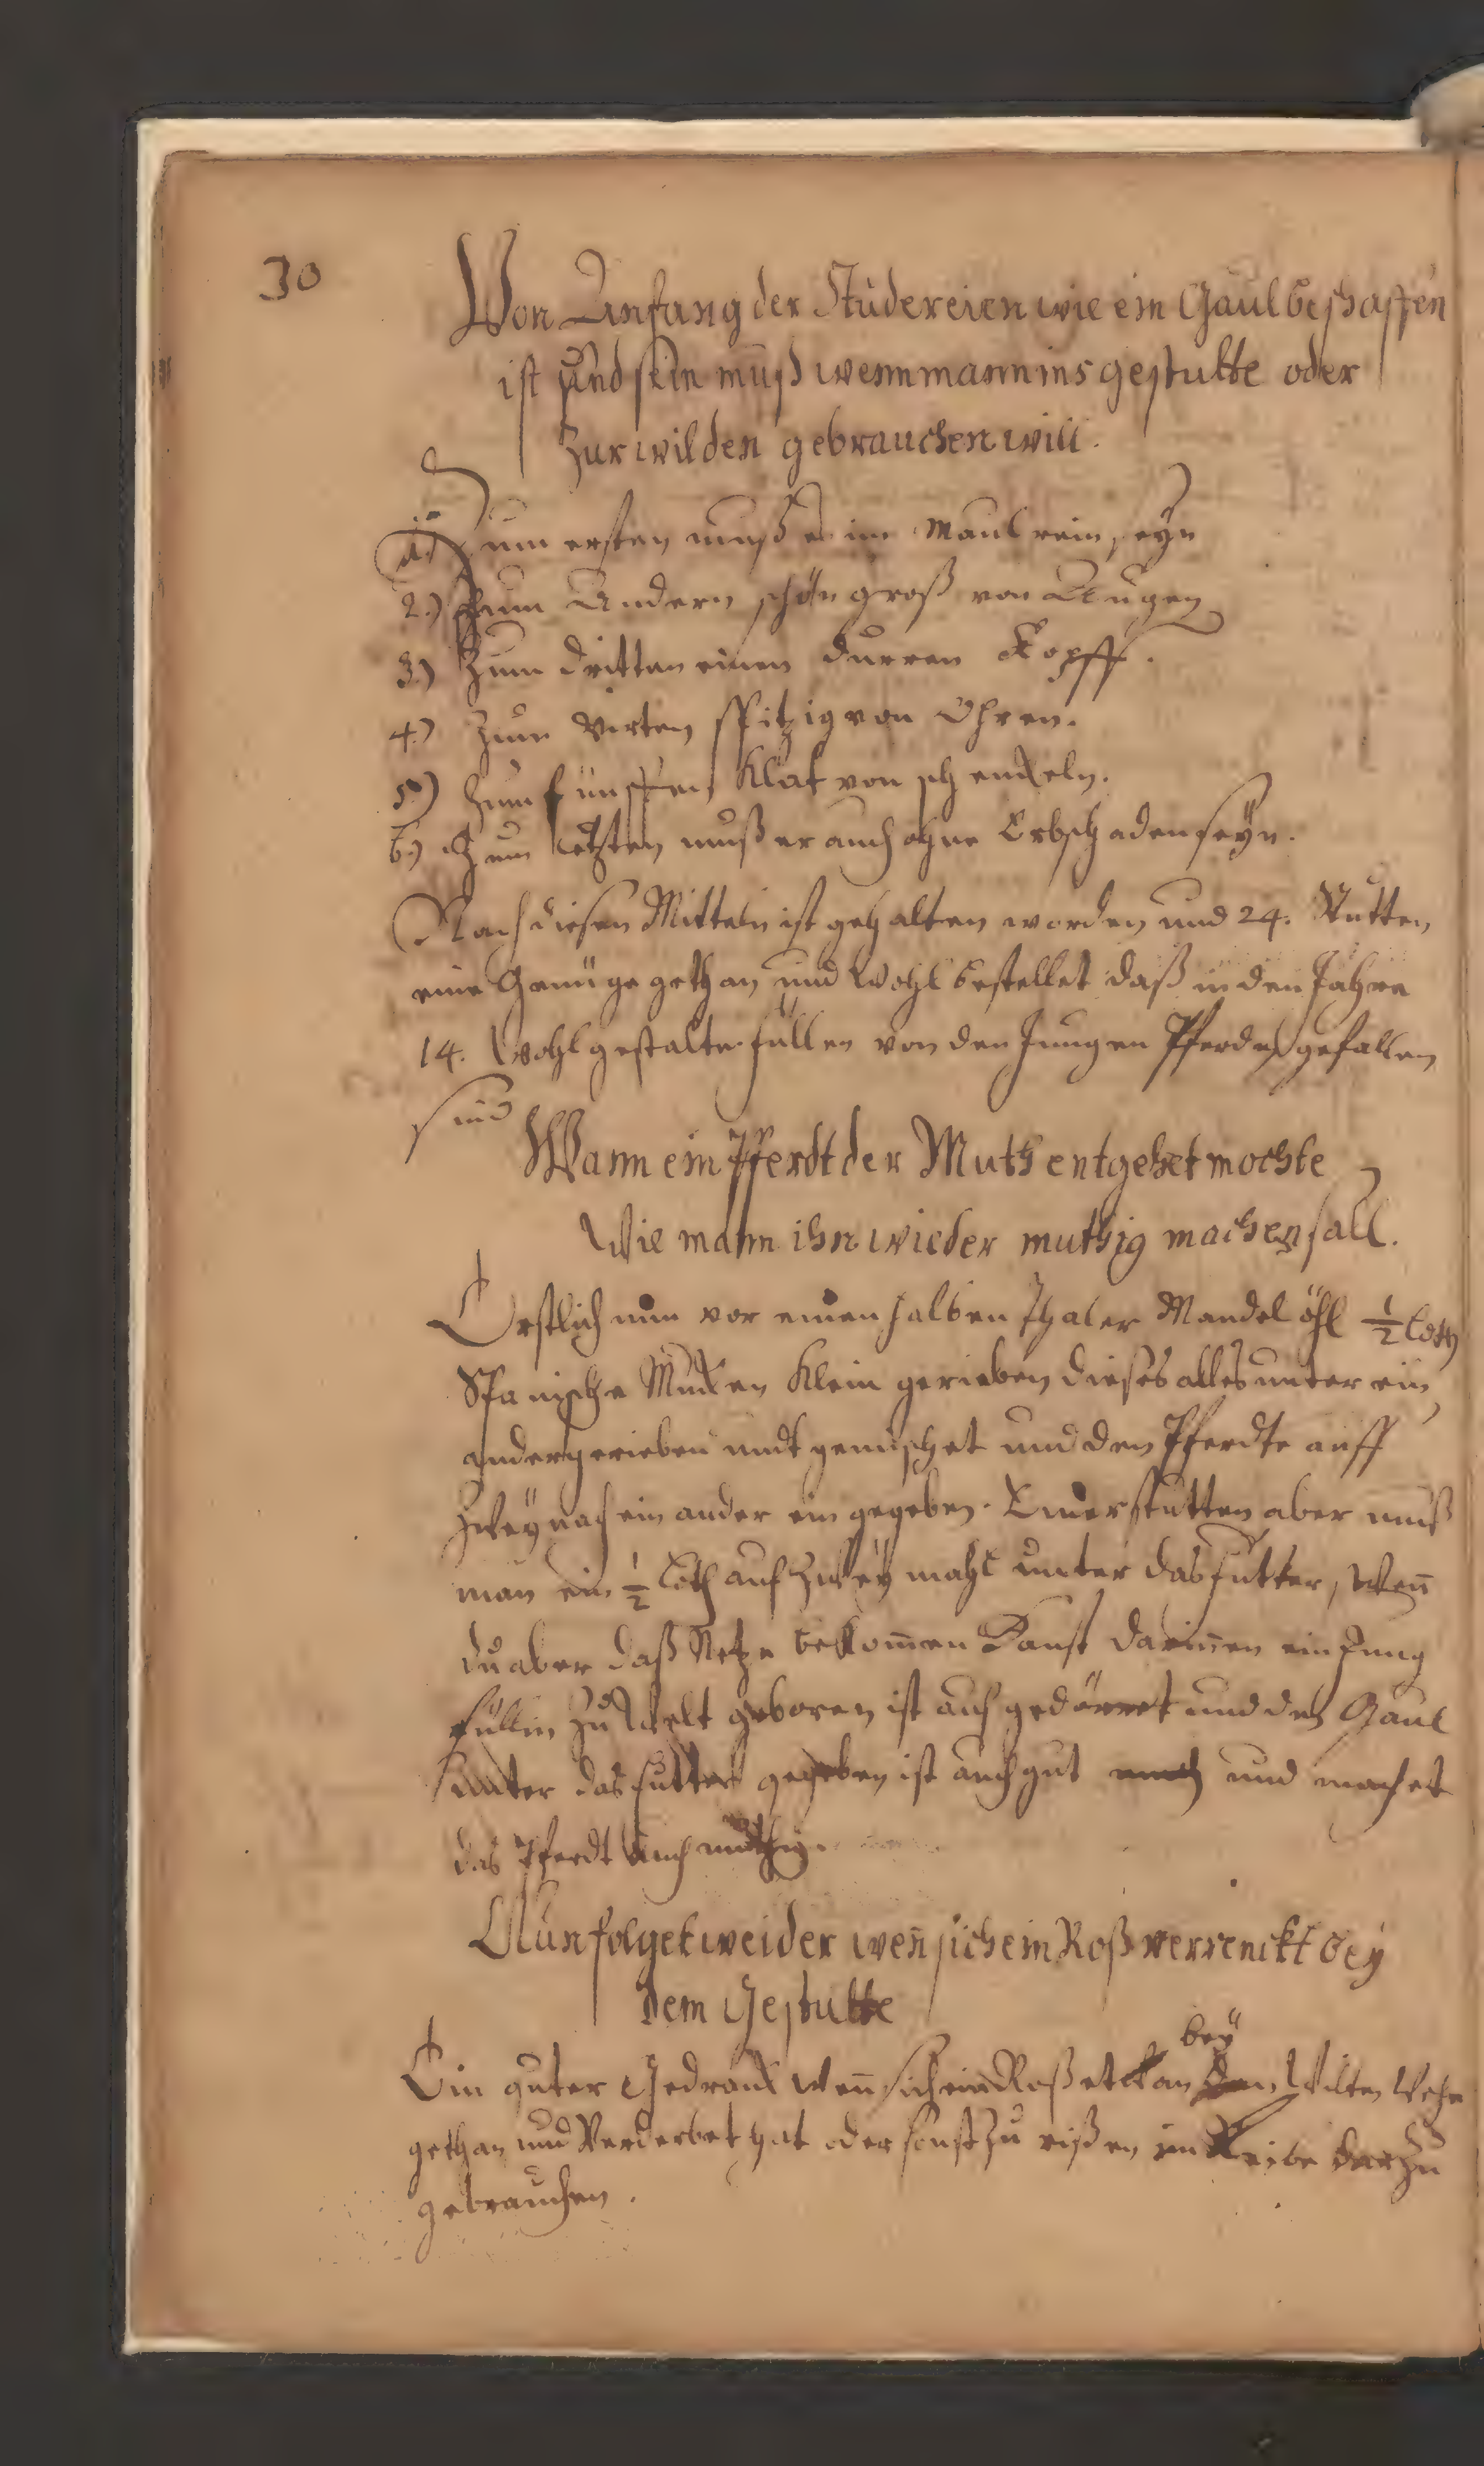 30
Von Anfang der Studereien wie ein Gaul beschaffen
ist und sein muß wenn mann ins gestutte oder
Zur wilden gebrauchen will.
1.) Zum ersten muß er im Maul rein seyn
2.) Zum Andern schön groß von Augen
3.) Zum dritten einen durren Kopff.
4.) Zum virten spitzig von Ohren.
5.) Zum fünfften Klat von schenckeln.
6.) Zum letzten muß er auch ohne Erbschaden seyn.
Nach diesen Mitteln ist gehalten worden und 24. Stutten
eine Genüge gethan und wohl bestellet daß in den Jahre
14. wohl gestalte füllen von den Jungen Pferden gefallen
sind
Wann ein Pferdt der Muth entgehet mochte
Wie mann ihn wieder muthig machen sall.
Erstlich nim vor einen halben Thaler Mandel öhl ½ loth
Spanische Mucken Klein gerieben dieses alles unter ein
ander gerieben undt gemischet und den Pferdte auff
Zwey nach ein ander ein gegeben. Einer stutten aber muß
man ein ½ Loth auf Zwey mahl unter das futter, wen̄
du aber daß Netze bekom̄en Kanst darin̄en ein Jung
füllin zu Welt geboren ist auf gedörret und den Gaul
unter das futter gegeben ist auch gut und machet
das Pferdt auch muthig.
Nun folget weider wen̄ sich ein Roß verrenckt bey
dem Gestutte
bey
Ein guter Gedranck wen̄ sich ein Roß etwan den Wilten Wehe
gethan und Verderbet hat oder sonst zu rißen im Leibe darzu
gebrauchen.